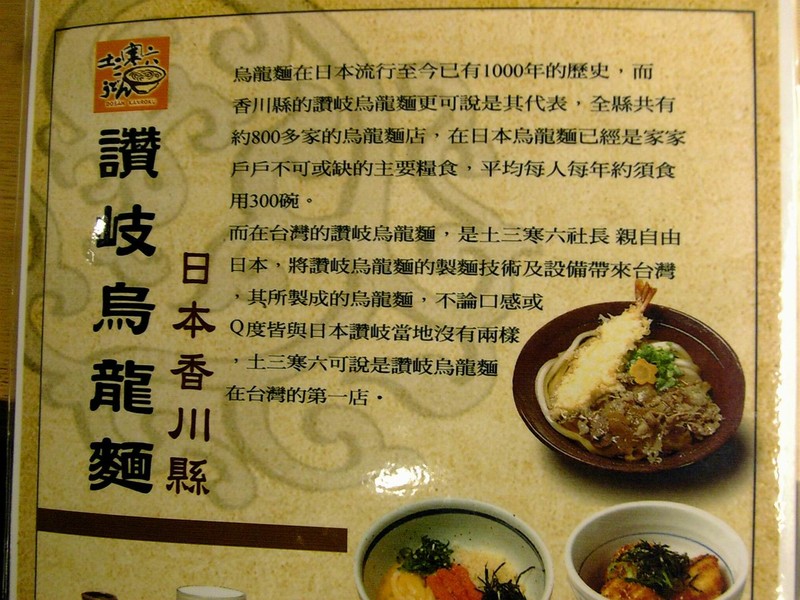 土三寒六
うどん
DOSAN KANROKU
讚岐烏龍麵
日本香川縣
烏龍麵在日本流行至今已有1000年的歷史，而
香川縣的讚岐烏龍麵更可說是其代表，全縣共有
約800多家的烏龍麵店，在日本烏龍麵已經是家家
戶戶不可或缺的主要糧食，平均每人每年約須食
用300碗。
而在台灣的讚岐烏龍麵，是土三寒六社長 親自由
日本，將讚岐烏龍麵的製麵技術及設備帶來台灣
，其所製成的烏龍麵，不論口感或
Q度皆與日本讚岐當地沒有兩樣
，土三寒六可說是讚岐烏龍麵
在台灣的第一店．